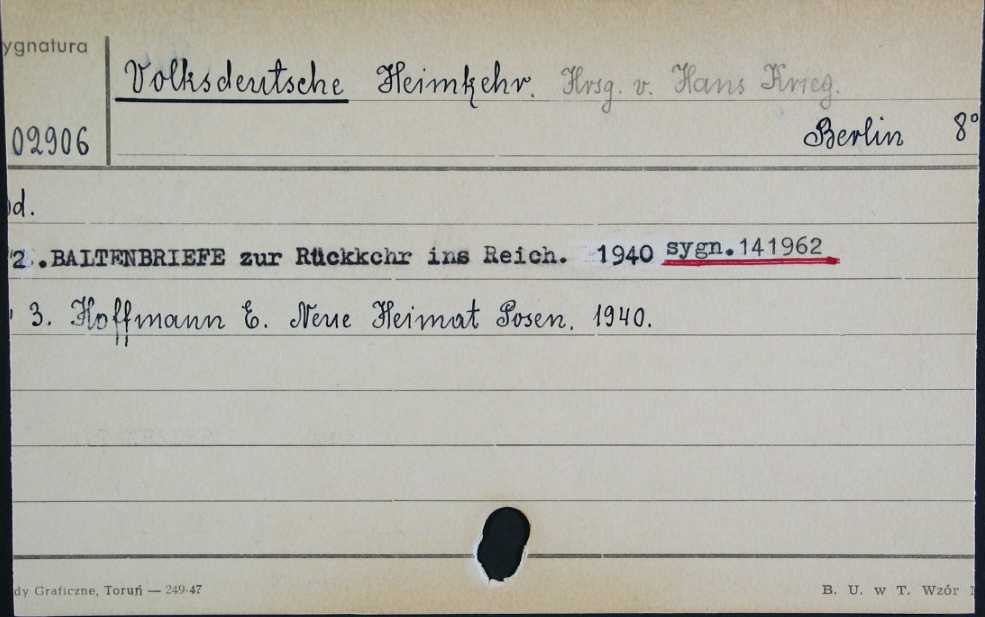 ygnatura
Volksdeutsche Heimkehr. Hrsg. v. Hans Krieg.
02906
Berlin 8°
d.
2 .BALTENBRIEFE zur Rückkehr ins Reich. 1940 sygn.141962
3. Hoffmann E. Neue Heimat Posen. 1940.
dy Graficzne, Toruń — 249-47
B. U. w T. Wzór